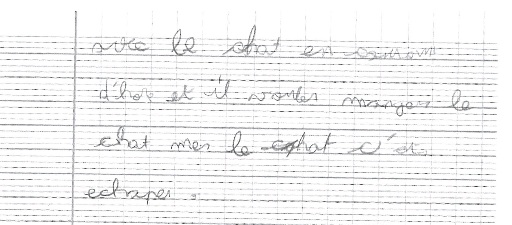 avec le chat en
d'hor et il vouler manger le
chat mes le chat c'et
echaper.